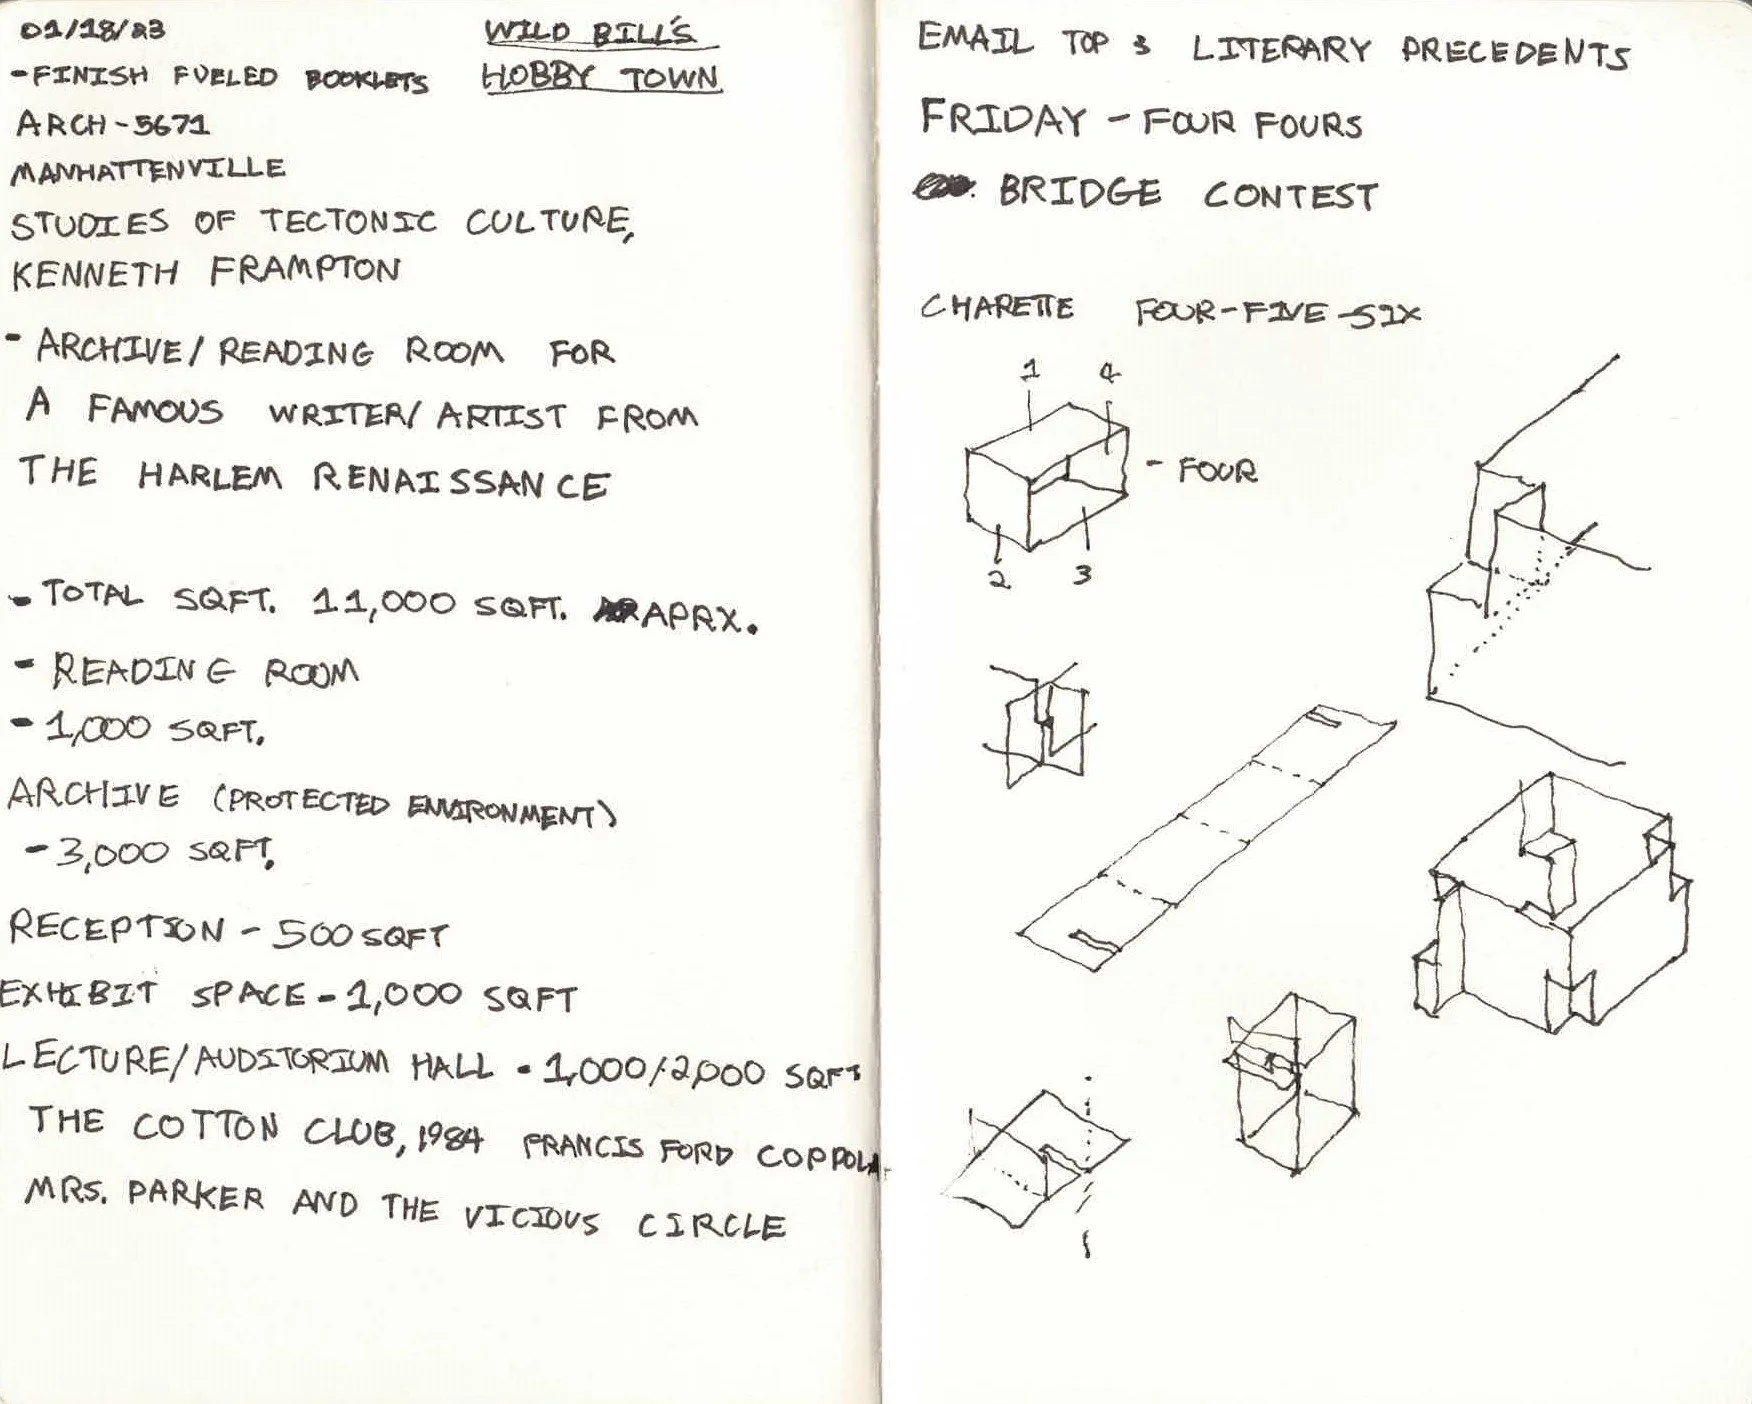 01/18/23
- FINISH FUELED BOOKLETS
WILD BILL'S
HOBBY TOWN
ARCH - 5671
MANHATTENVILLE
STUDIES OF TECTONIC CULTURE,
KENNETH FRAMPTON
- ARCHIVE / READING ROOM FOR
A FAMOUS WRITER / ARTIST FROM
THE HARLEM RENAISSANCE
- TOTAL SQFT. 11,000 SQFT. APRX.
- READING ROOM
- 1,000 SQFT.
ARCHIVE (PROTECTED ENVIRONMENT)
- 3,000 SQFT.
RECEPTION - 500 SQFT
EXHIBIT SPACE - 1,000 SQFT
LECTURE/AUDITORIUM HALL - 1,000/2,000 SQFT
THE COTTON CLUB, 1984 FRANCIS FORD COPPOLA
MRS. PARKER AND THE VICIOUS CIRCLE
EMAIL TOP 3 LITERARY PRECEDENTS
FRIDAY - FOUR FOURS
BRIDGE CONTEST
CHARETTE FOUR-FIVE-SIX
1 4
- FOUR
2 3